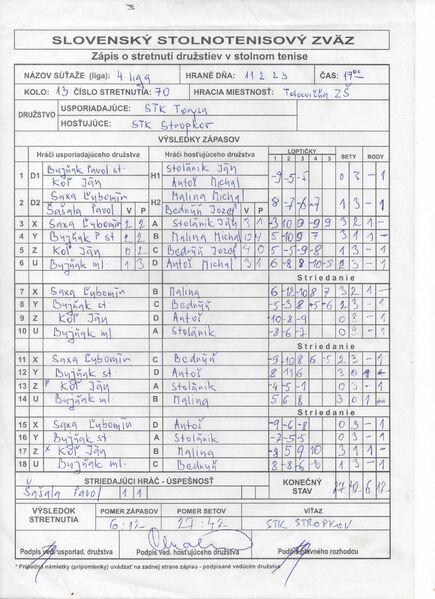 SLOVENSKÝ STOLNOTENISOVÝ ZVÄZ
Zápis o stretnutí družstiev v stolnom tenise
NÁZOV SÚŤAŽE (liga): 4 liga HRANÉ DŇA: 11.2.23 ČAS: 1700
KOLO: 13 ČÍSLO STRETNUTIA: 70 HRACIA MIESTNOSŤ: Telocvičňa ZŠ
DRUŽSTVO USPORIADAJÚCE: STK Torysa
HOSŤUJÚCE: STK Stropkov
VÝSLEDKY ZÁPASOV
Hráči usporiadajúceho družstva Hráči hosťujúceho družstva LOPTIČKY SETY BODY
1 2 3 4 5
1 D1 Byjňak Pavol st. H1 Stolánik Ján -9 -5 -5 0 3 - 1
Kol Ján Antoš Michal
2 D2 Saxa Ľubomín H2 Malina Michal 8 -7 -6 -7 1 3 - 1
Šašala Pavol V P Bednýň Jozef V P
3 X Saxa Ľubomín 2 2 A Stolánik Ján 3 1 -3 10 9 -9 9 3 2 1 -
4 Y Byjňak P st 2 2 B Malina Michal 0 4 5 10 9 3 0 1 -
5 Z Kol Ján 0 2 C Bednýň 4 0 5 -5 -9 -8 1 3 - 1
6 U Byjňak ml. 1 3 D Antoš Michal 3 1 6 -8 8 -10 -5 2 3 - 1
Striedanie
7 X Saxa Ľubomín B Malina 6 -12 -10 8 7 3 2 1 -
8 Y Byjňak st C Bednýň 2 3 - 1
9 Z Kol Ján D Antoš -10 -8 -9 0 3 - 1
10 U Byjňak ml. A Stolánik -8 -6 -7 0 3 - 1
Striedanie
11 X Saxa Ľubomín C Bednýň -9 -10 8 6 -5 2 3 - 1
12 Y Byjňak st. D Antoš 8 11 6 3 0 1 -
13 Z Kol Ján A Stolánik -4 -5 -1 0 3 - 1
14 U Byjňak ml B Malina 5 6 8 3 0 1 -
Striedanie
15 X Saxa Ľubomín D Antoš -9 -6 -8 0 3 - 1
16 Y Byjňak st A Stolánik -7 -5 -5 0 3 - 1
17 Z Kol Ján B Malina -8 5 9 10 3 1 1 -
18 U Byjňak ml. C Bednýň 8 -8 -6 -10 1 3 - 1
STRIEDAJÚCI HRÁČ - ÚSPEŠNOSŤ KONEČNÝ STAV 27 42 6 12
Šašala Pavol 1 1
VÝSLEDOK STRETNUTIA POMER ZÁPASOV POMER SETOV VÍŤAZ
6:12 27:42 STK STROPKOV
Podpis ved. usporiad. družstva Podpis ved. hosťujúceho družstva Podpis hlavného rozhodcu
* Prípadné námietky (pripomienky) uvádzať na zadnej strane zápisu - podpísané vedúcim družstva